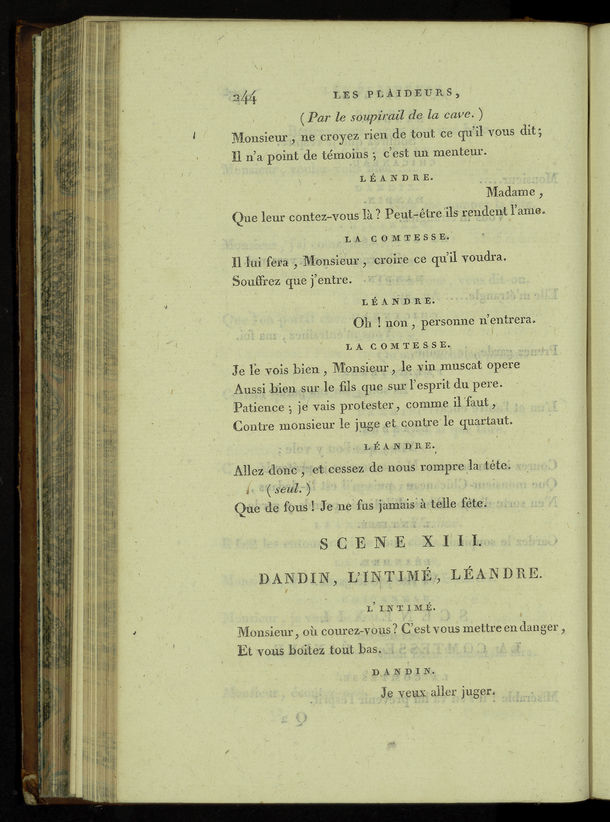 244 LES PLAIDEURS,
( Par le soupirail de la cave. )
Monsieur, ne croyez rien de tout ce qu'il vous dit ;
Il n'a point de témoins ; c'est un menteur.
LÉANDRE.
Madame,
Que leur contez-vous là ? Peut-être ils rendent l'ame.
LA COMTESSE.
Il lui fera, Monsieur, croire ce qu'il voudra.
Souffrez que j'entre.
LÉANDRE.
Oh ! non, personne n'entrera.
LA COMTESSE.
Je le vois bien, Monsieur, le vin muscat opere
Aussi bien sur le fils que sur l'esprit du pere.
Patience ; je vais protester, comme il faut,
Contre monsieur le juge et contre le quartaut.
LÉANDRE.
Allez donc, et cessez de nous rompre la tête.
( seul. )
Que de fous ! Je ne fus jamais à telle fête.
SCENE XIII.
DANDIN, L'INTIMÉ, LÉANDRE.
L'INTIMÉ.
Monsieur, où courez-vous ? C'est vous mettre en danger,
Et vous boitez tout bas.
DANDIN.
Je veux aller juger.